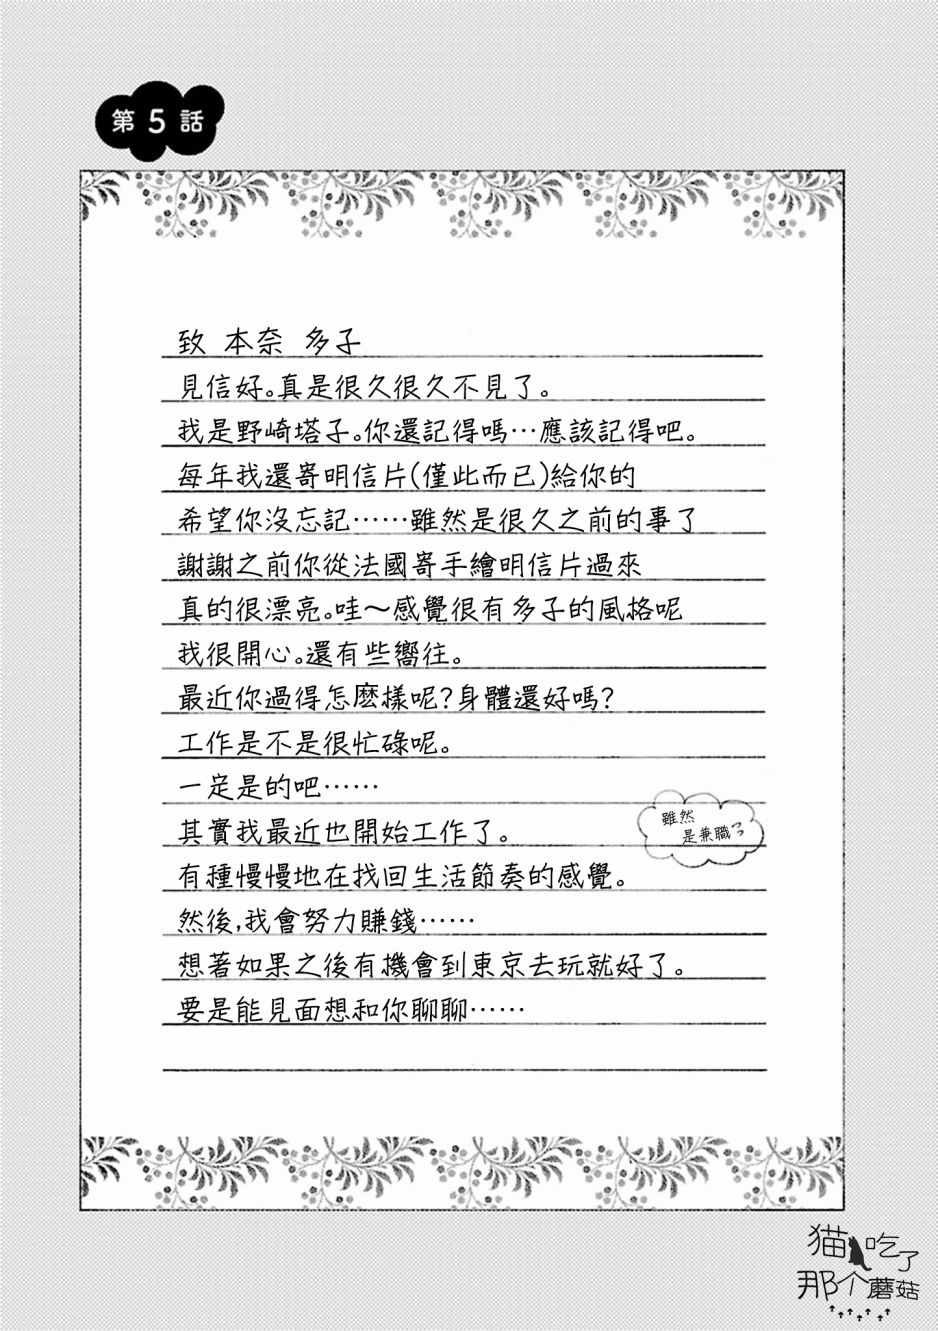 第5話
致 本奈 多子
見信好。真是很久很久不見了。
我是野崎塔子。你還記得嗎…應該記得吧。
每年我還寄明信片(僅此而已)給你的
希望你沒忘記……雖然是很久之前的事了
謝謝之前你從法國寄手繪明信片過來
真的很漂亮。哇～感覺很有多子的風格呢
我很開心。還有些嚮往。
最近你過得怎麼樣呢?身體還好嗎?
工作是不是很忙碌呢。
一定是的吧……
雖然
是兼職了
其實我最近也開始工作了。
有種慢慢地在找回生活節奏的感覺。
然後,我會努力賺錢……
想著如果之後有機會到東京去玩就好了。
要是能見面想和你聊聊……
猫吃了
那个蘑菇